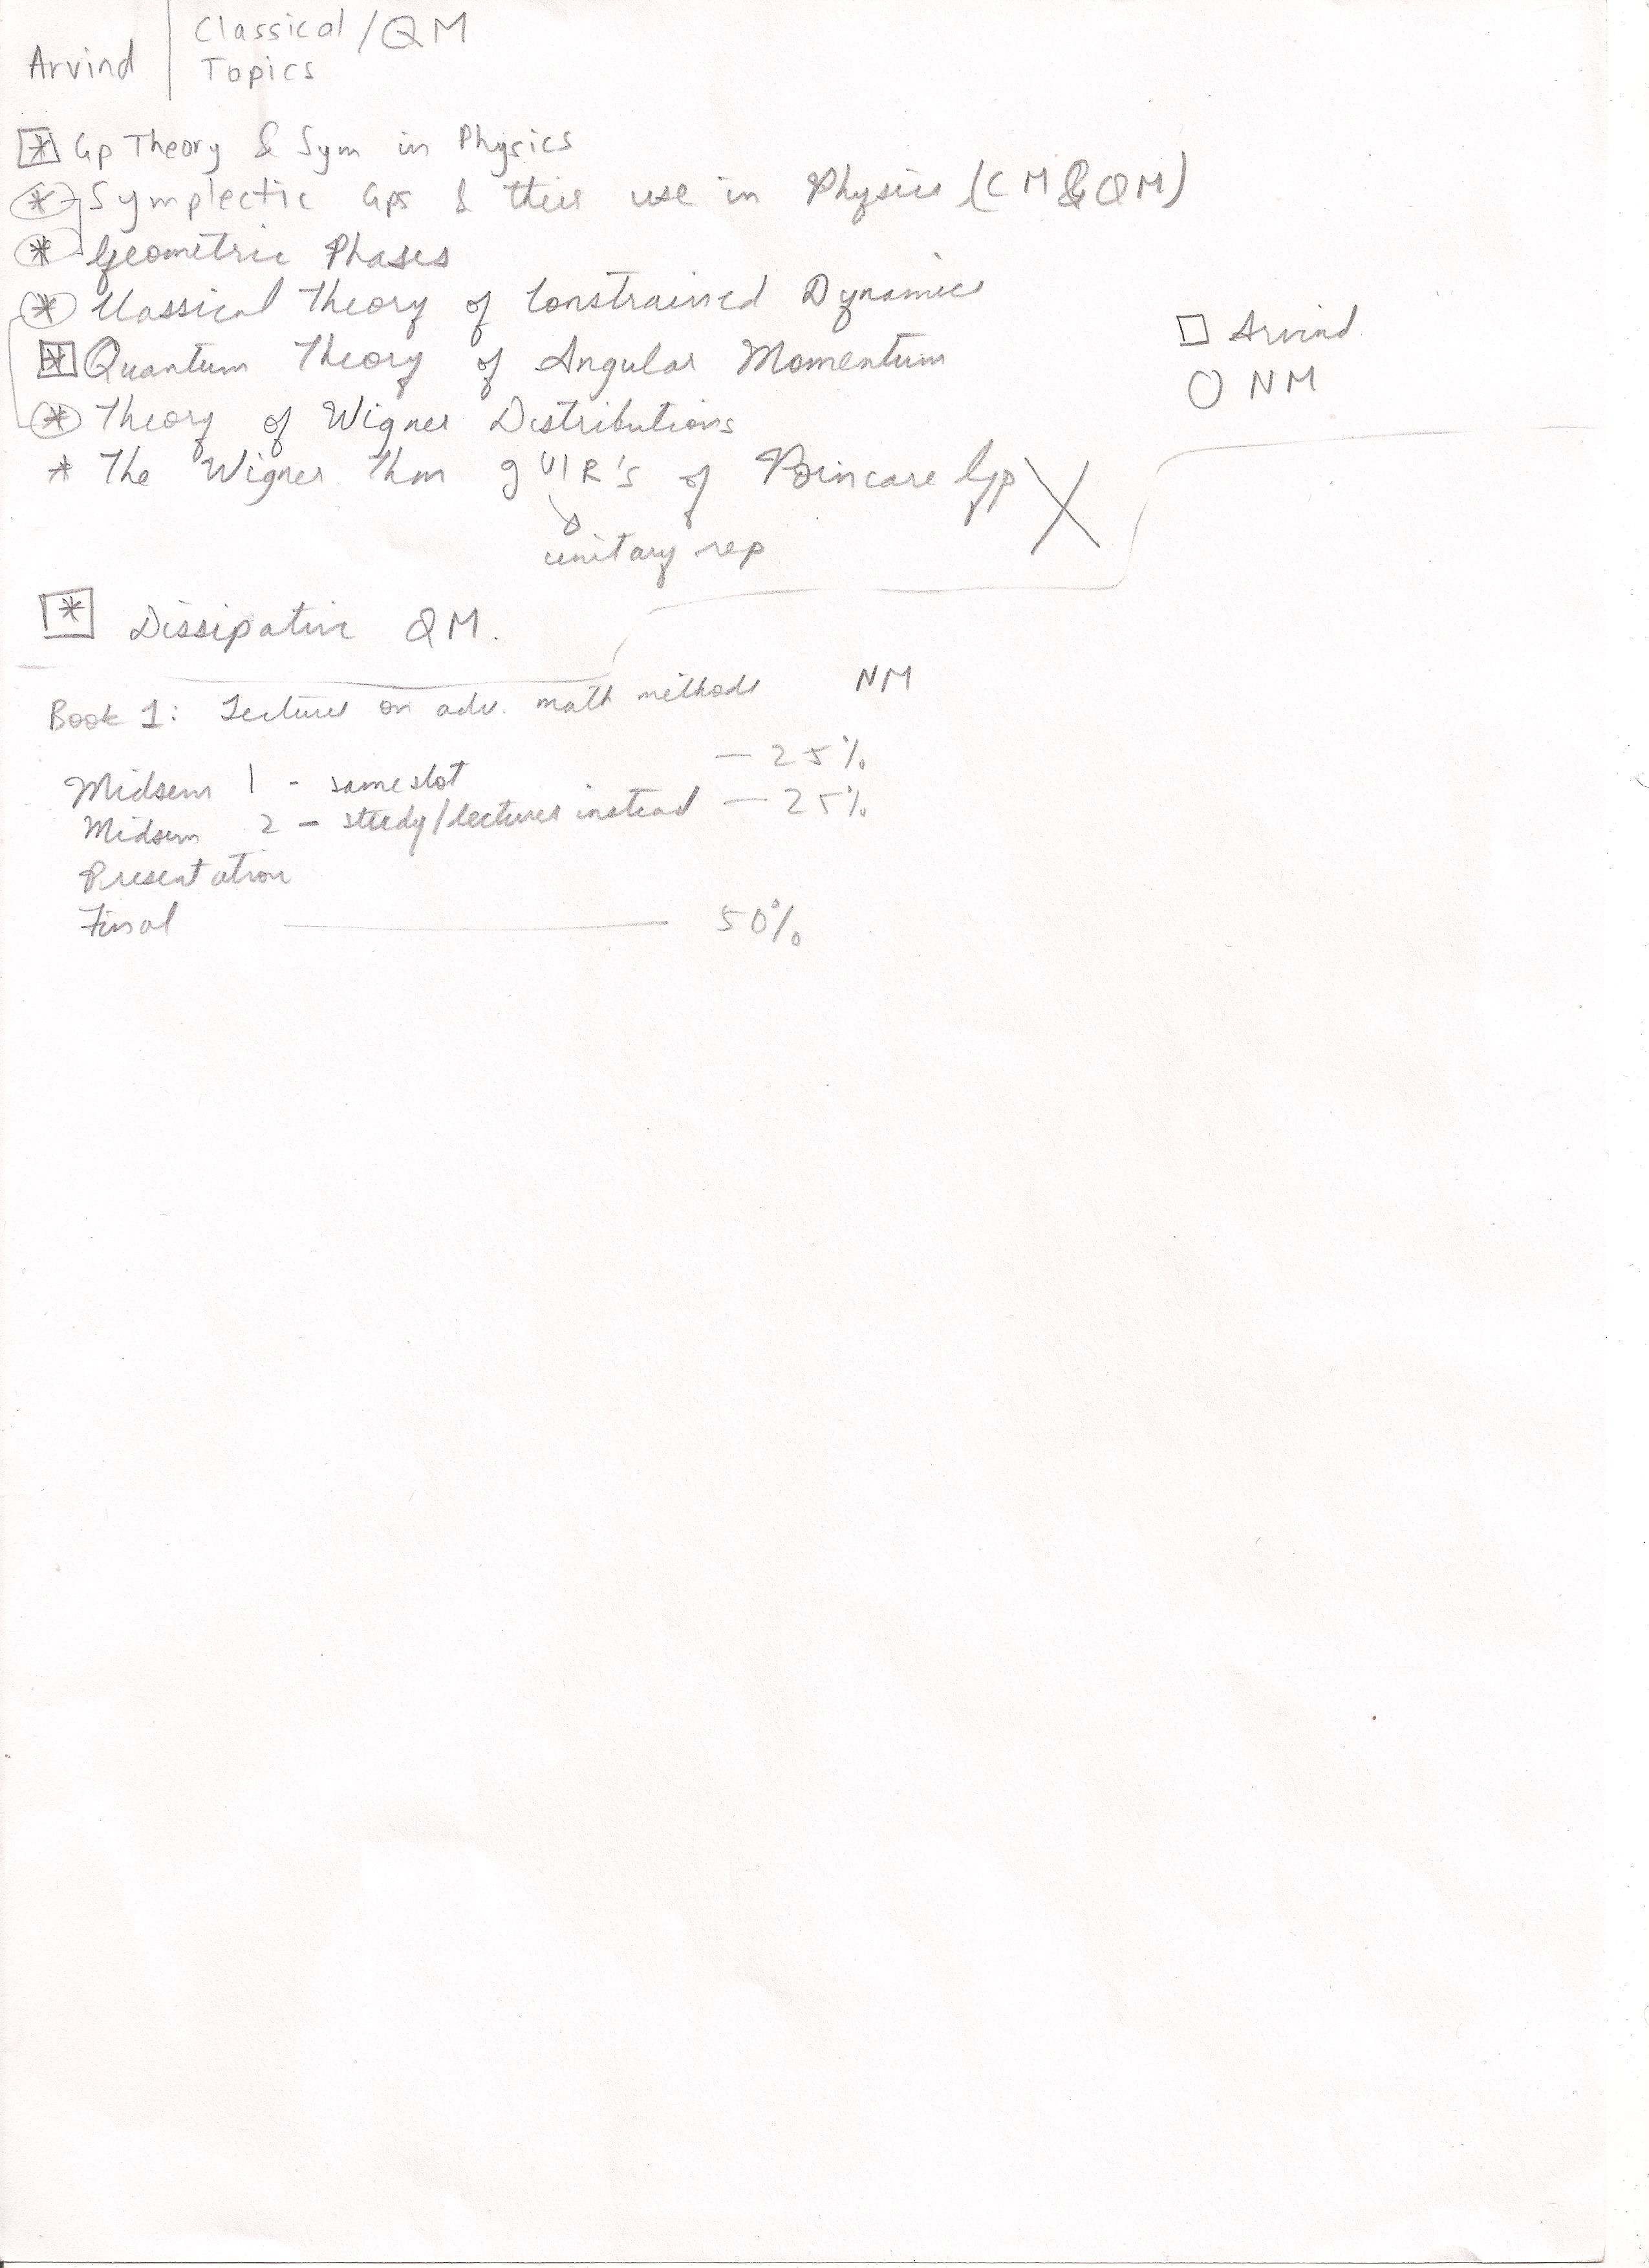 Arvind | Classical/QM
Topics
* Gp Theory & Sym in Physics
* Symplectic Gps & their use in Physics (CM & QM)
* Geometric Phases
* Classical Theory of Constrained Dynamics
* Quantum Theory of Angular Momentum
□ Arvind
○ NM
* Theory of Wigner Distributions
* The Wigner Thm & UIR's of Poincare Gp X
unitary rep
* Dissipative QM.
Book 1: Lectures on adv. math methods NM
Midsem 1 - same slot — 25%
Midsem 2 - study/lectures instead — 25%
Presentation
Final — 50%